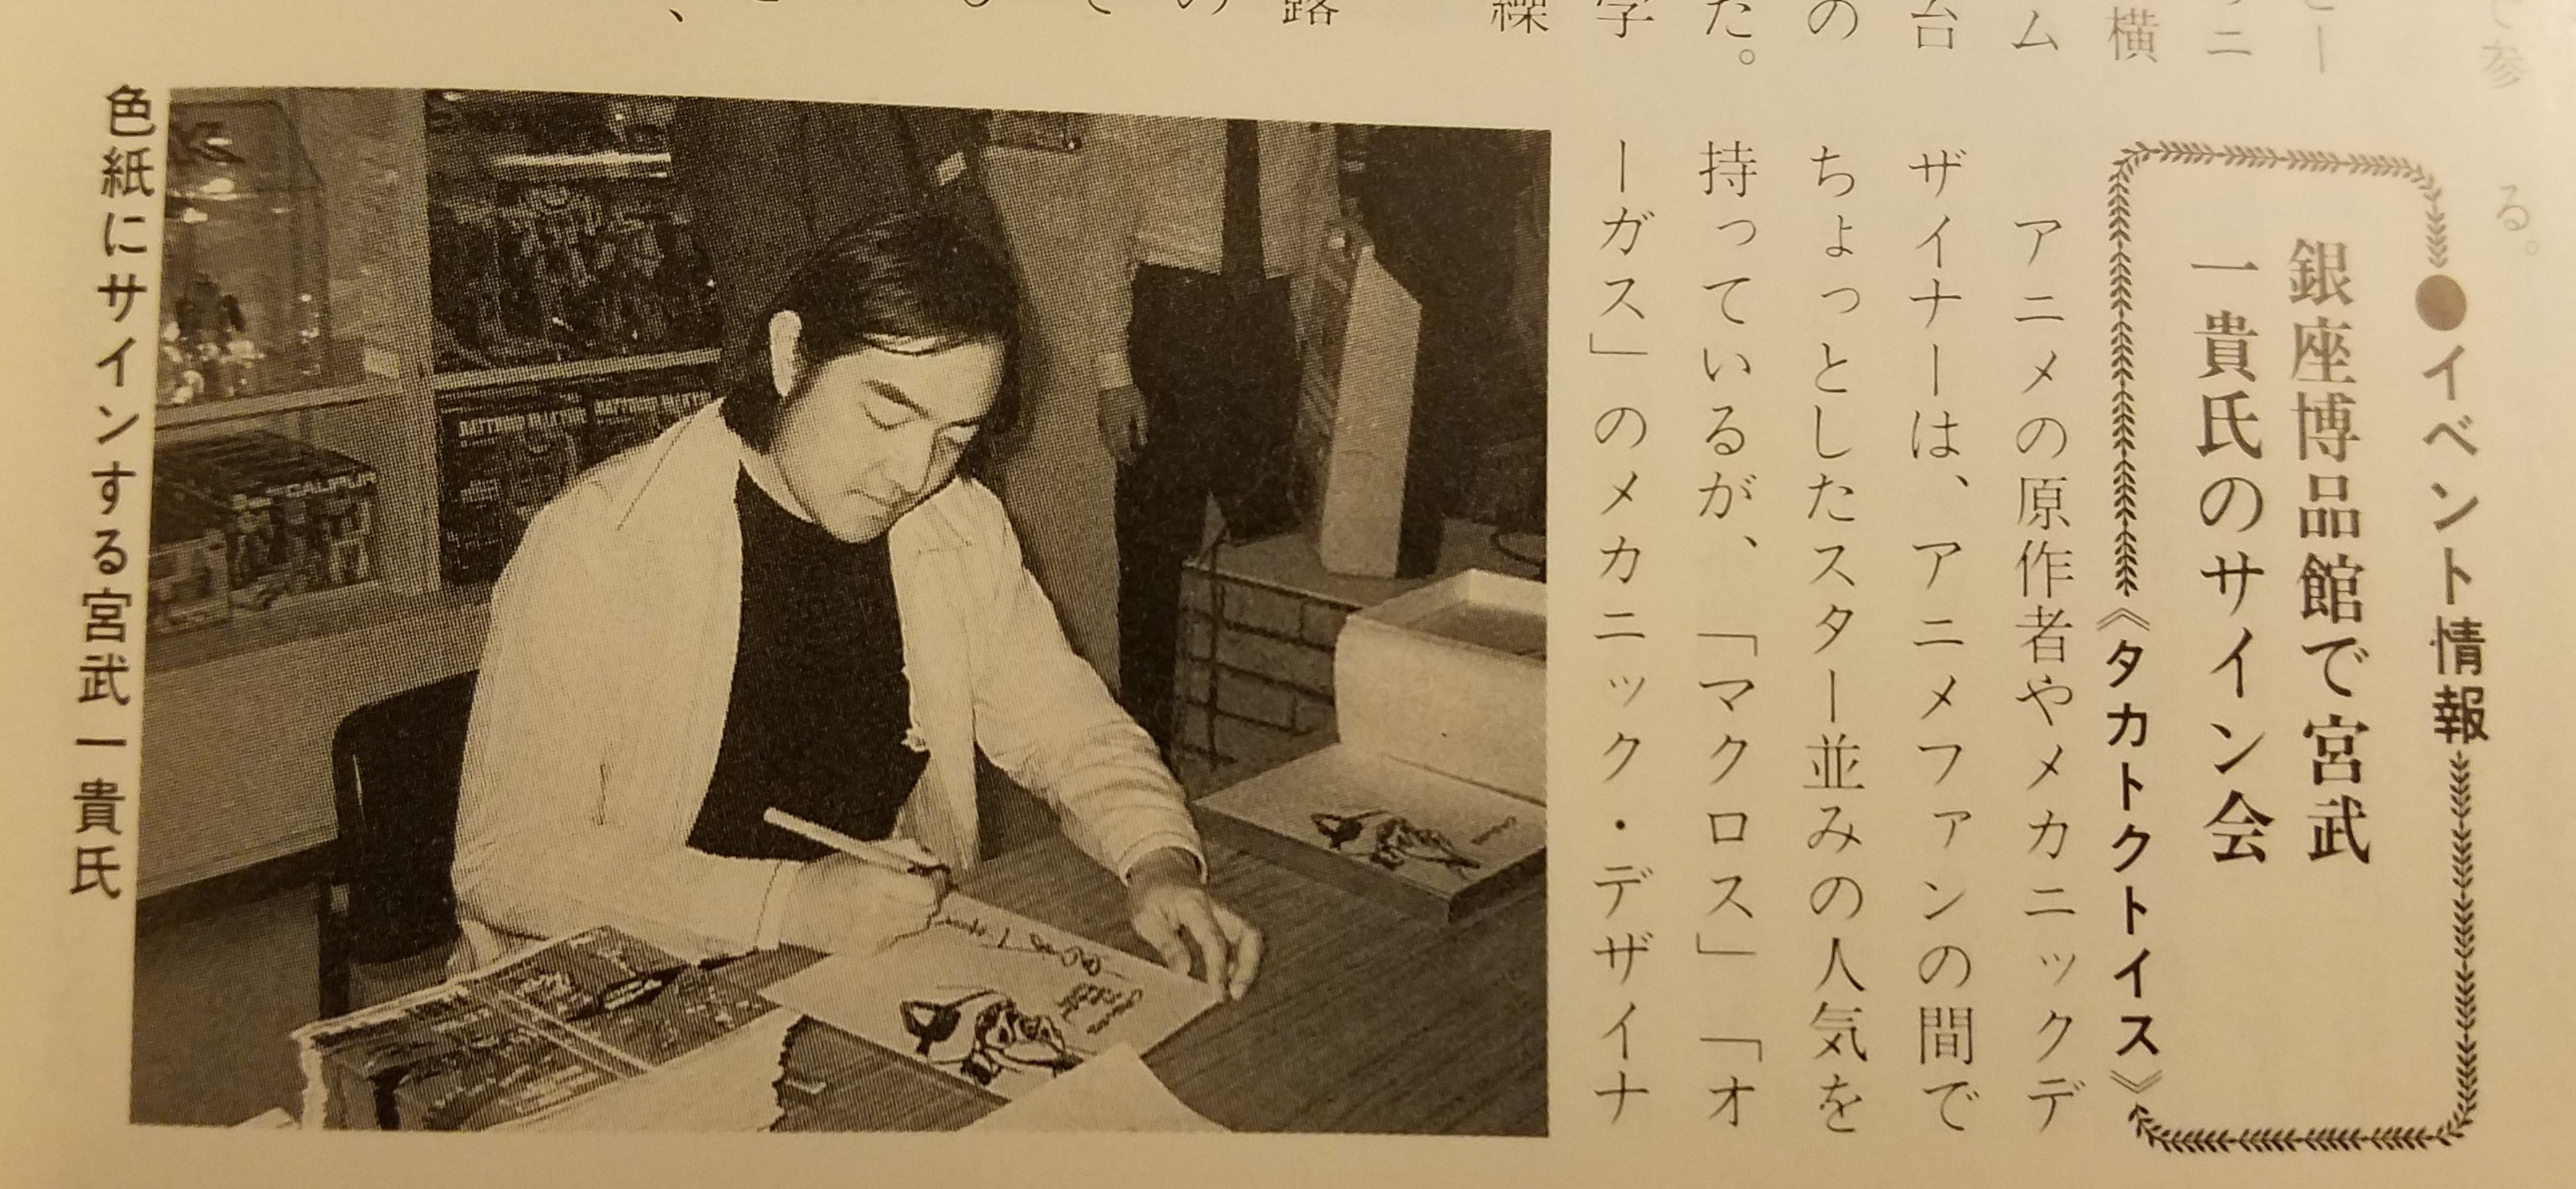 で参
ピー
ニ
横
ム
台
の
た。
学
繰
路
の
て
、
る。
●イベント情報
銀座博品館で宮武
一貴氏のサイン会
《タカトクトイス》
アニメの原作者やメカニックデ
ザイナーは、アニメファンの間で
ちょっとしたスター並みの人気を
持っているが、「マクロス」「オ
ーガス」のメカニック・デザイナ
色紙にサインする宮武一貴氏